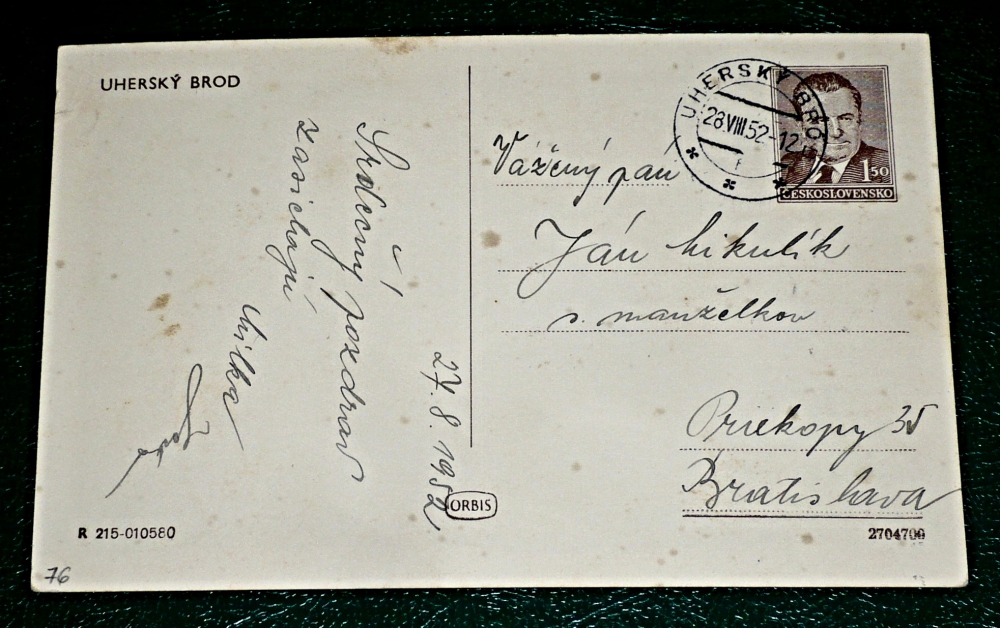 UHERSKÝ BROD
27. 8. 1952
Srdečný pozdrav
zasielajú
Milka
R 215-010580
76
ORBIS
UHERSKÝ BROD
28.VIII.52-12
1 50
ČESKOSLOVENSKO
Vážený pán
Ján Mikulík
s. manželkov
Priekopy 35
Bratislava
2704700